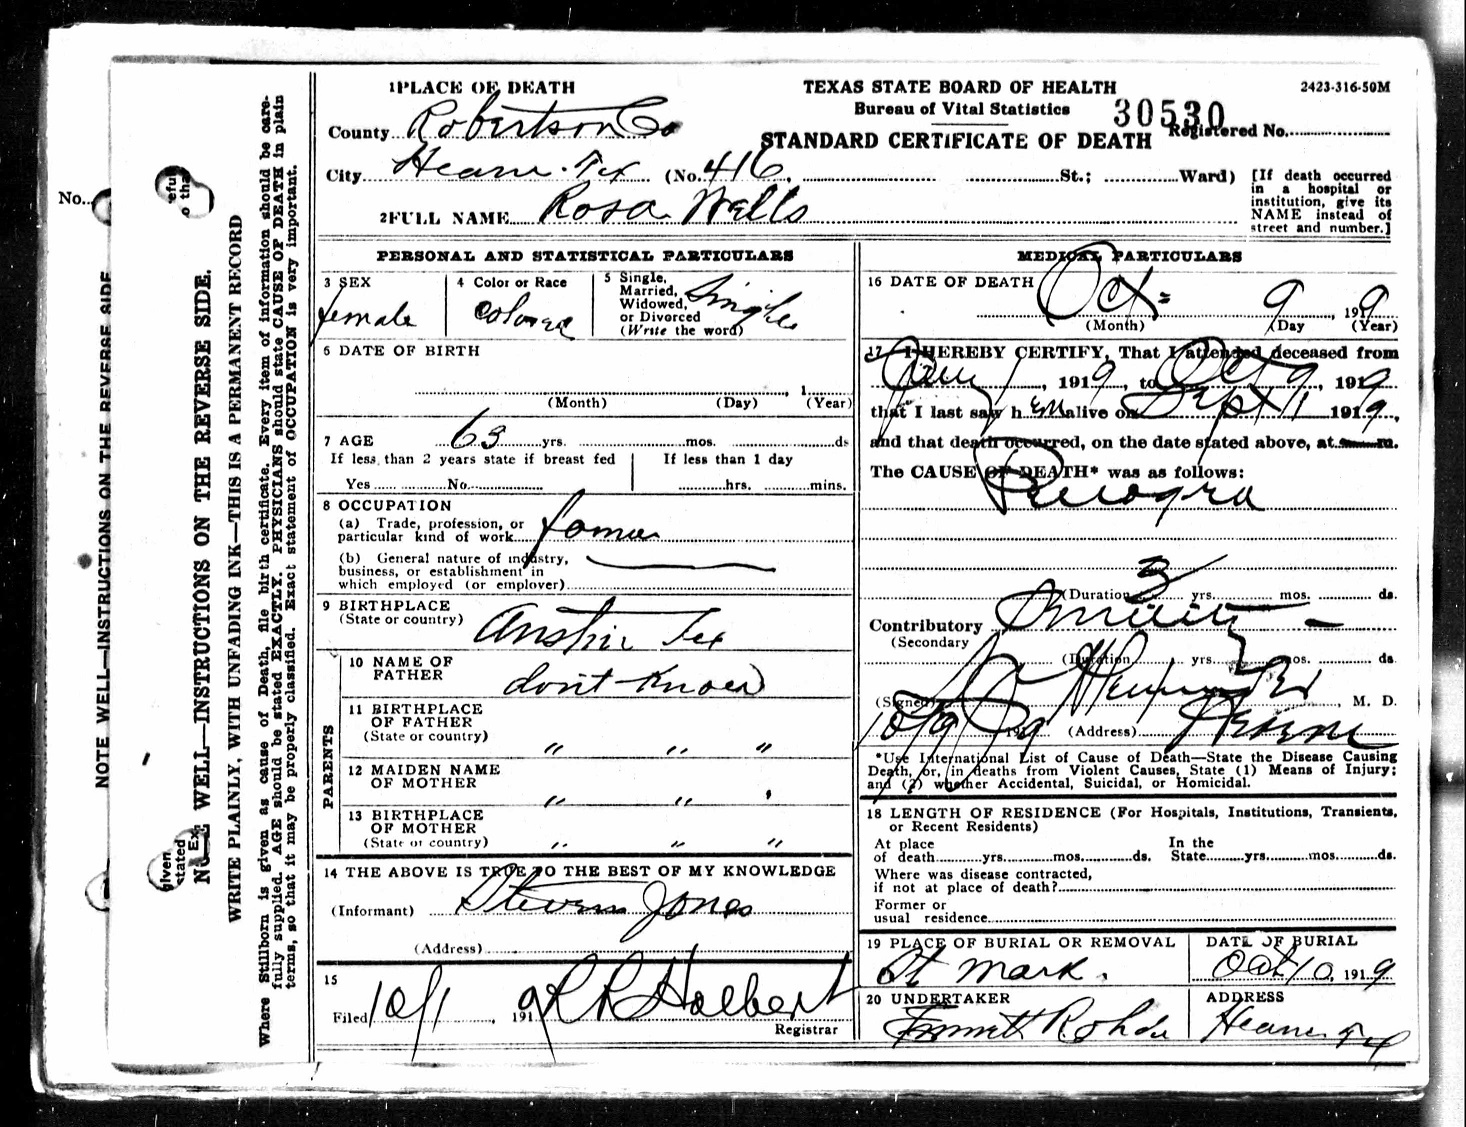 1 PLACE OF DEATH
County Robertson Co
City Hearne Tex (No. 416, St.; Ward)
TEXAS STATE BOARD OF HEALTH
Bureau of Vital Statistics
STANDARD CERTIFICATE OF DEATH
2423-316-50M
30530
Registered No.
[If death occurred
in a hospital or
institution, give its
NAME instead of
street and number.]
2 FULL NAME Rosa Wells
PERSONAL AND STATISTICAL PARTICULARS
3 SEX
female
4 Color or Race
Colored
5 Single,
Married,
Widowed,
or Divorced
(Write the word)
Single
6 DATE OF BIRTH
, 1
(Month) (Day) (Year)
7 AGE 63 yrs. mos. ds
If less than 2 years state if breast fed
Yes No
If less than 1 day
hrs. mins.
8 OCCUPATION
(a) Trade, profession, or
particular kind of work
(b) General nature of industry,
business, or establishment in
which employed (or employer)
9 BIRTHPLACE
(State or country)
Austin Tex
PARENTS
10 NAME OF
FATHER
dont Know
11 BIRTHPLACE
OF FATHER
(State or country)
" " "
12 MAIDEN NAME
OF MOTHER
" " '
13 BIRTHPLACE
OF MOTHER
(State or country)
" " "
14 THE ABOVE IS TRUE TO THE BEST OF MY KNOWLEDGE
(Informant) Jones
(Address)
15
Filed 10/1, 1919 R R Holbert
Registrar
MEDICAL PARTICULARS
16 DATE OF DEATH Oct 9, 1919
(Month) (Day (Year)
17 I HEREBY CERTIFY, That I attended deceased from
1, 1919, to Oct 9, 1919
that I last saw h er alive on Sept 11 1919,
and that death occurred, on the date stated above, at m.
The CAUSE OF DEATH* was as follows:
(Duration 3 yrs. mos. ds.
Contributory
(Secondary
(Duration yrs. mos. ds
(Signed) , M. D.
10/9 1919 (Address) Hearne
*Use International List of Cause of Death—State the Disease Causing
Death, or, in deaths from Violent Causes, State (1) Means of Injury;
and (2) whether Accidental, Suicidal, or Homicidal.
18 LENGTH OF RESIDENCE (For Hospitals, Institutions, Transients,
or Recent Residents)
At place
of death yrs. mos. ds.
In the
State yrs. mos. ds.
Where was disease contracted,
if not at place of death?
Former or
usual residence
19 PLACE OF BURIAL OR REMOVAL
St Mark.
DATE OF BURIAL
Oct 10, 1919
20 UNDERTAKER
Emmett Rohde
ADDRESS
Hearne Tex
No.
NOTE WELL—INSTRUCTIONS ON THE REVERSE SIDE
WELL—INSTRUCTIONS ON THE REVERSE SIDE.
WRITE PLAINLY, WITH UNFADING INK—THIS IS A PERMANENT RECORD
Where Stillborn is given as cause of Death, file birth certificate. Every item of information should be care-
fully supplied. AGE should be stated EXACTLY. PHYSICIANS should state CAUSE OF DEATH in plain
terms, so that it may be properly classified. Exact statement of OCCUPATION is very important.
given
stated
Ex